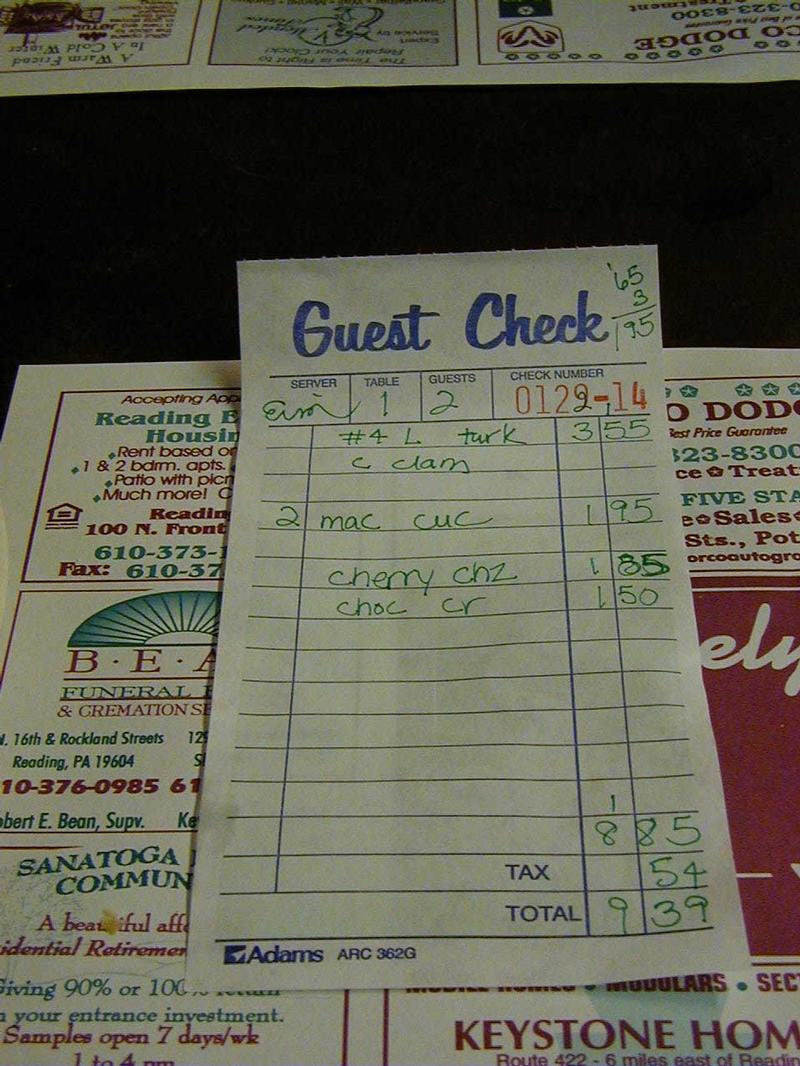 A Warm Friend
In A Cold Winter
JØTUL
The Time is Right to
Repair Your Clock!
Expert
Service by
CO DODGE
-323-8300
Treatment
Guest Check
'65
3
195
SERVER TABLE GUESTS CHECK NUMBER
1 2 0129-14
#4 L turk 3 55
c clam
2 mac cuc 1 95
cherry chz 1 85
choc cr 1 50
1
8 85
TAX 54
TOTAL 9 39
Adams ARC 362G
Accepting App
Reading E
Housin
Rent based o
1 & 2 bdrm. apts.
Patio with picn
Much more! C
Readin
100 N. Front
610-373-1
Fax: 610-37
B·E·A
FUNERAL
& CREMATION SE
N. 16th & Rockland Streets 12
Reading, PA 19604 S
10-376-0985 61
obert E. Bean, Supv. Ke
SANATOGA
COMMUN
A beautiful affo
idential Retiremen
Giving 90% or 100% return
n your entrance investment.
Samples open 7 days/wk
1 to 4 pm
O DODG
Best Price Guarantee
323-8300
ce Treat
FIVE STA
e Sales
Sts., Pot
orcoautogro
ely
MOBILE HOMES • MODULARS • SEC
KEYSTONE HOM
Route 422 - 6 miles east of Readin